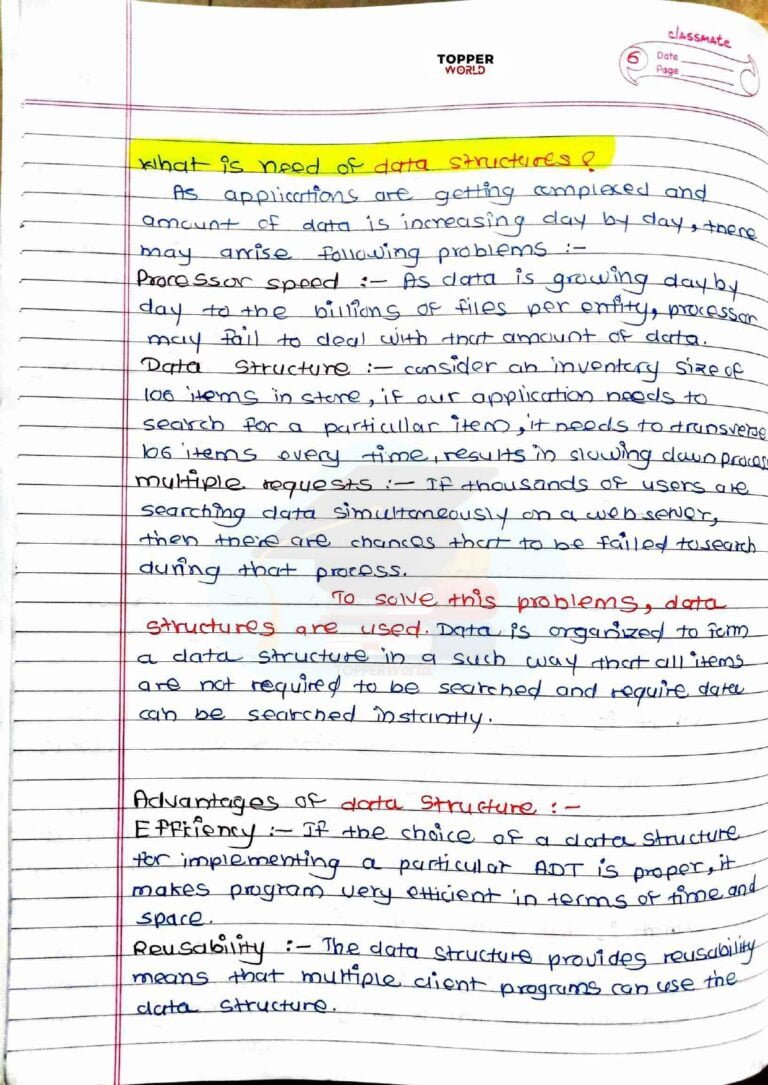 classmate
TOPPER
WORLD
6 Date
Page
What is need of data structures?
As applications are getting complexed and
amount of data is increasing day by day, there
may arrise following problems :-
Processor speed :- As data is growing day by
day to the billions of files per entity, processor
may fail to deal with that amount of data.
Data Structure :- consider an inventory size of
106 items in store, if our application needs to
search for a particular item, it needs to transverse
106 items every time, results in slowing down process
multiple requests :- If thousands of users are
searching data simultaneously on a web server,
then there are chances that to be failed to search
during that process.
To solve this problems, data
structures are used. Data is organized to form
a data structure in a such way that all items
are not required to be searched and require data
can be searched instantly.
Advantages of data structure :-
Efficiency :- If the choice of a data structure
for implementing a particular ADT is proper, it
makes program very efficient in terms of time and
space.
Reusability :- The data structure provides reusability
means that multiple client programs can use the
data structure.